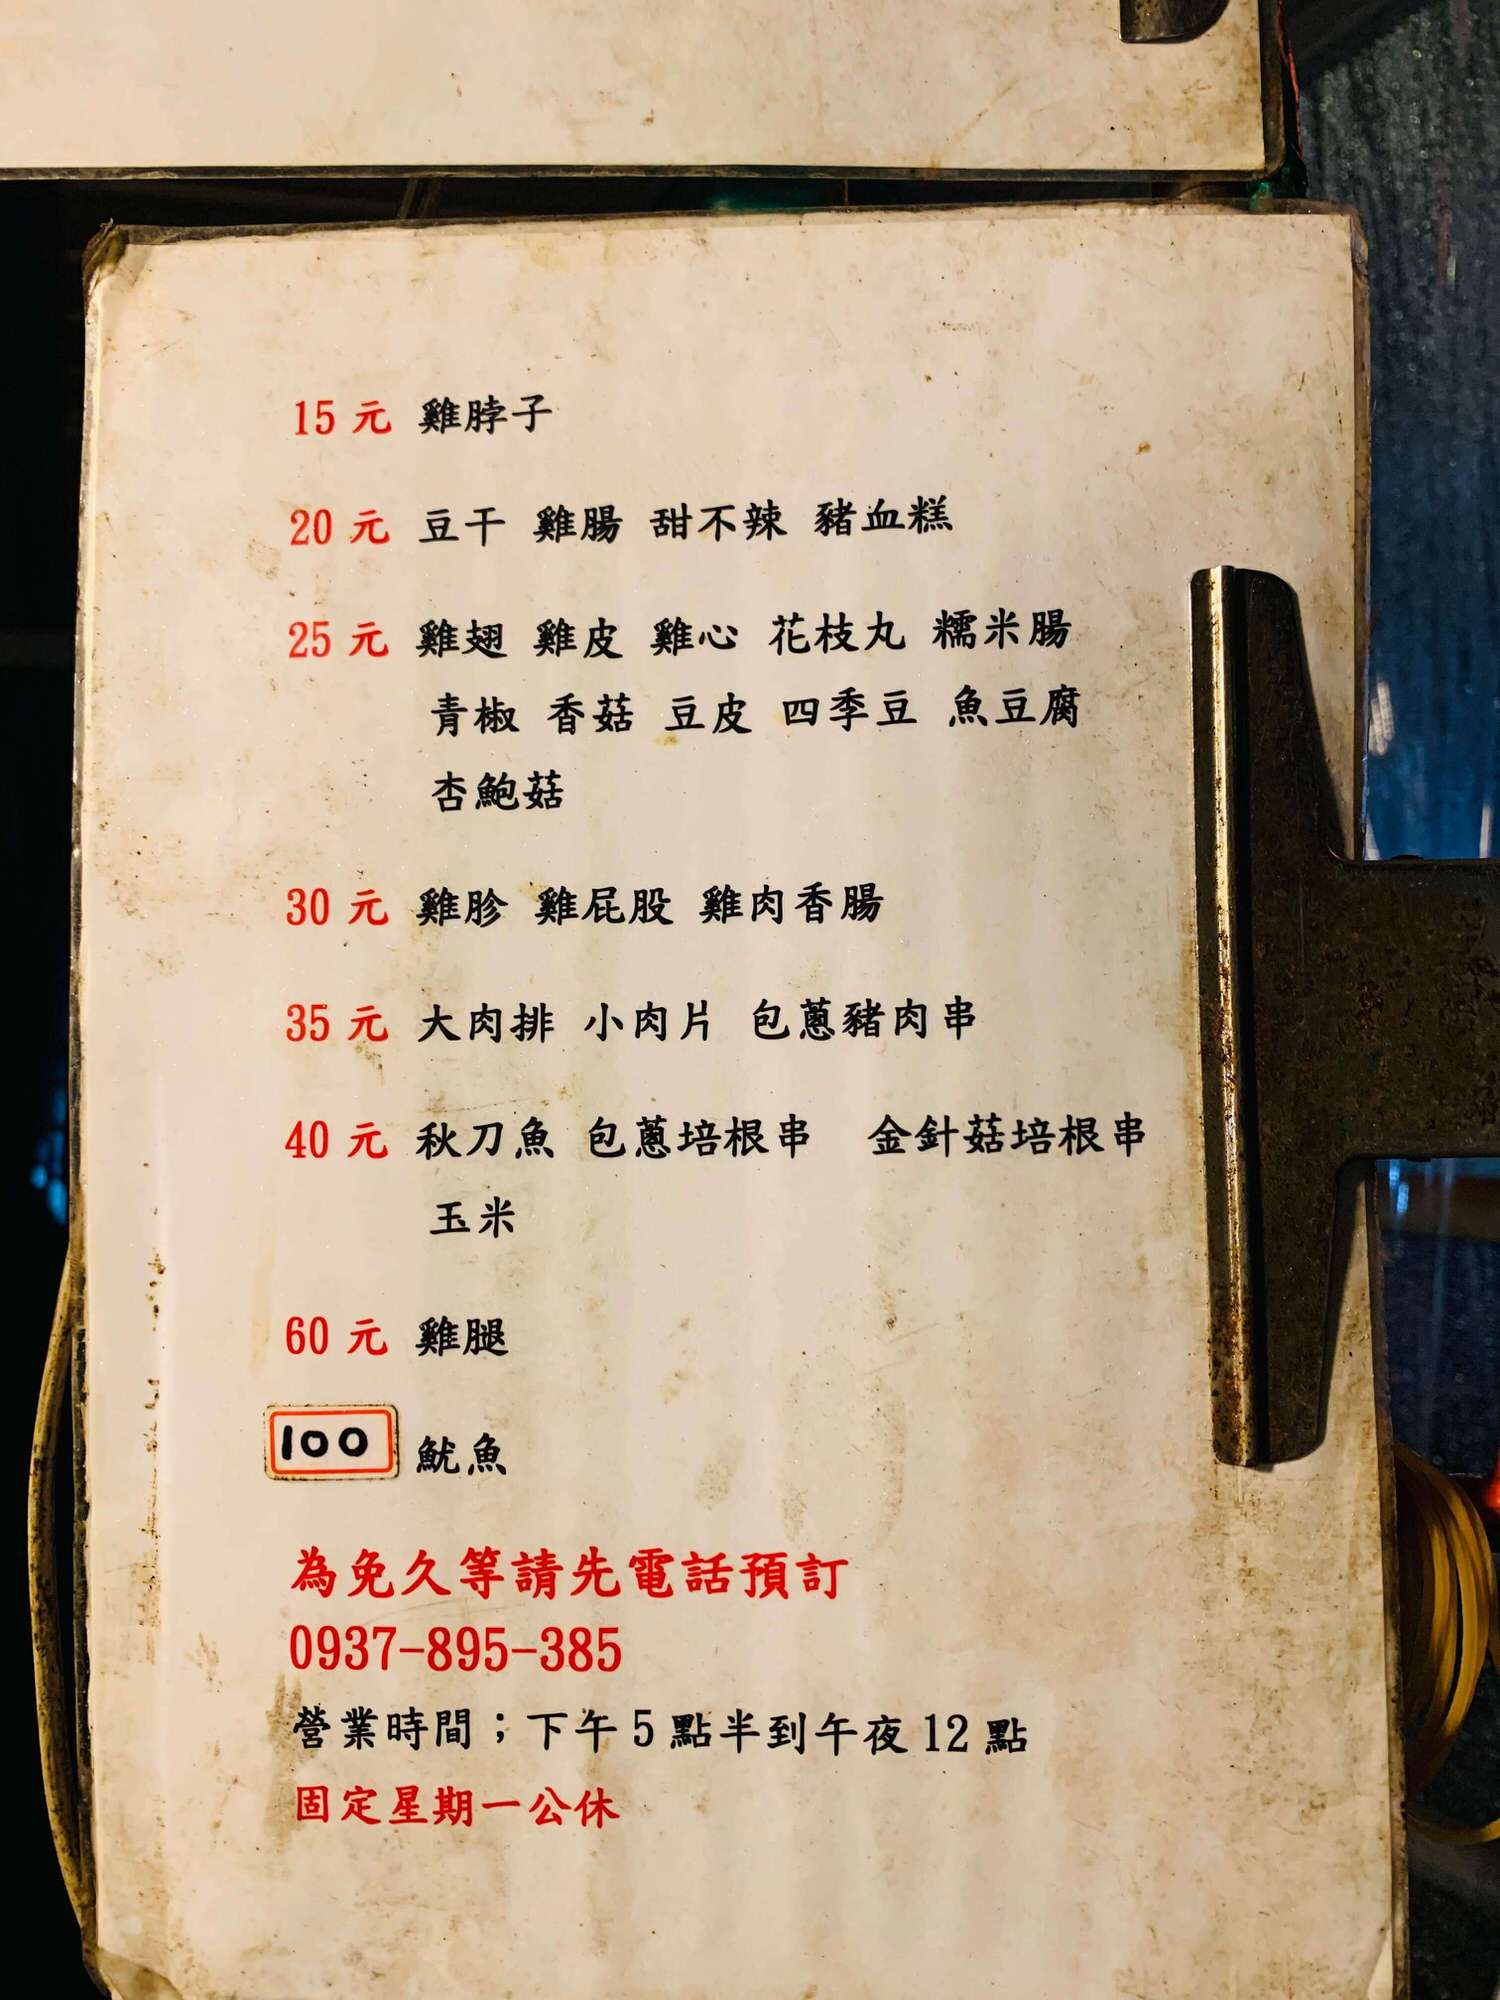 15 元 雞脖子
20 元 豆干 雞腸 甜不辣 豬血糕
25 元 雞翅 雞皮 雞心 花枝丸 糯米腸
青椒 香菇 豆皮 四季豆 魚豆腐
杏鮑菇
30 元 雞胗 雞屁股 雞肉香腸
35 元 大肉排 小肉片 包蔥豬肉串
40 元 秋刀魚 包蔥培根串 金針菇培根串
玉米
60 元 雞腿
100 魷魚
為免久等請先電話預訂
0937-895-385
營業時間；下午 5 點半到午夜 12 點
固定星期一公休